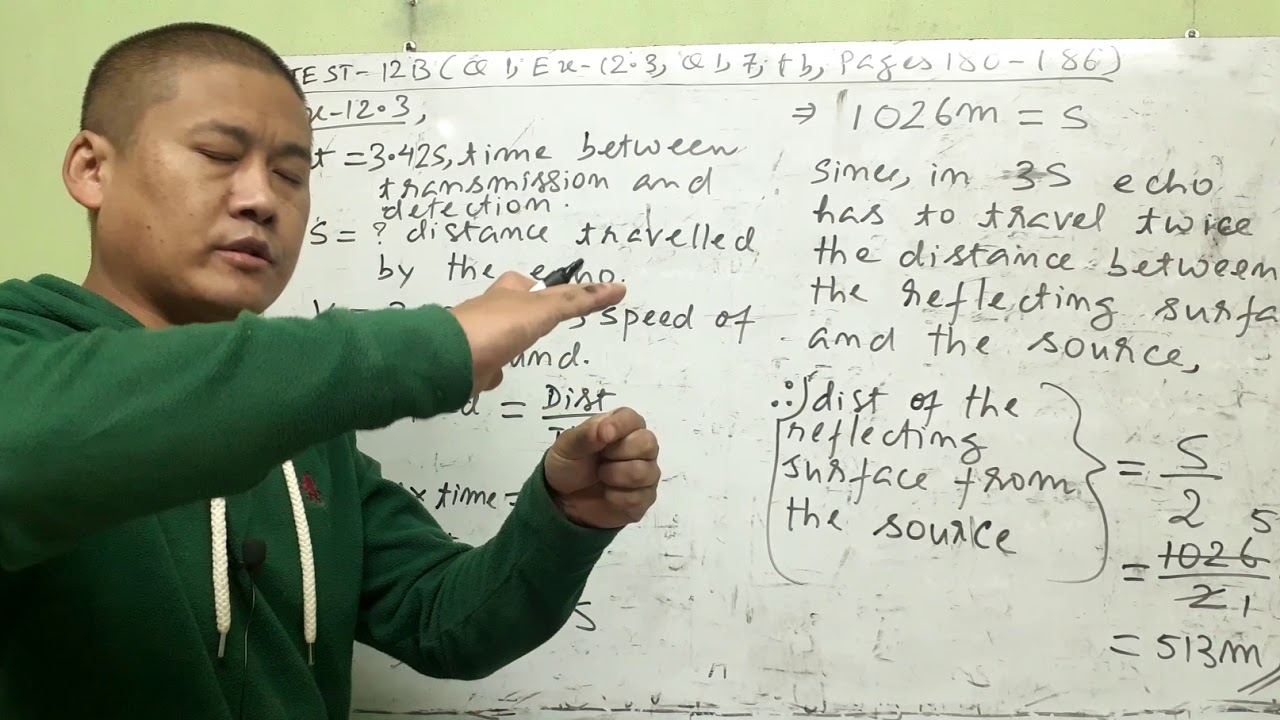 TEST-12B (Q 1, Ex-12.3, Q 1, 7, tb, Pages 180-186)
x-12.3,
t = 3.42s, time between
transmission and
detection.
S = ? distance travelled
by the echo.
speed of
und.
= Dist
× time =
S
⇒ 1026m = S
Since, in 3S echo
has to travel twice
the distance between
the reflecting surfa
and the source,
∴ dist of the
reflecting
surface from
the source
= S/2
5
= 1026/2 1
= 513m